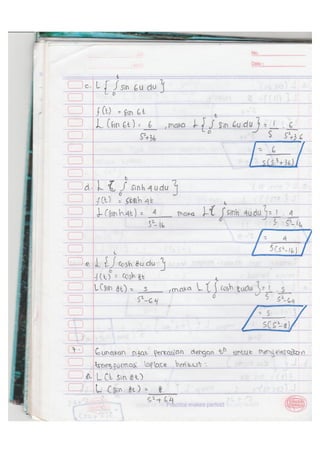 No.
Date :
c. L{∫₀ᵗ sin 6u du}
f(t) = sin 6t
L(sin 6t) = 6/(s²+36), maka L{∫₀ᵗ sin 6u du} = 1/s · 6/(s²+36)
= 6/(s(s²+36))
d. L{∫₀ᵗ sinh 4u du}
f(t) = sinh 4t
L(sinh 4t) = 4/(s²-16) maka L{∫₀ᵗ sinh 4u du} = 1/s · 4/(s²-16)
= 4/(s(s²-16))
e. L{∫₀ᵗ cosh 8u du}
f(t) = cosh 8t
L(sin 8t) = s/(s²-64), maka L{∫₀ᵗ cosh 8u du} = 1/s · s/(s²-64)
= s/(s(s²-8))
7. Gunakan sifat perkalian dengan tⁿ untuk menyelesaikan
transformasi laplace berikut :
a. L(t sin 8t)
L(sin 8t) = 8/(s²+64)
Practice makes perfect